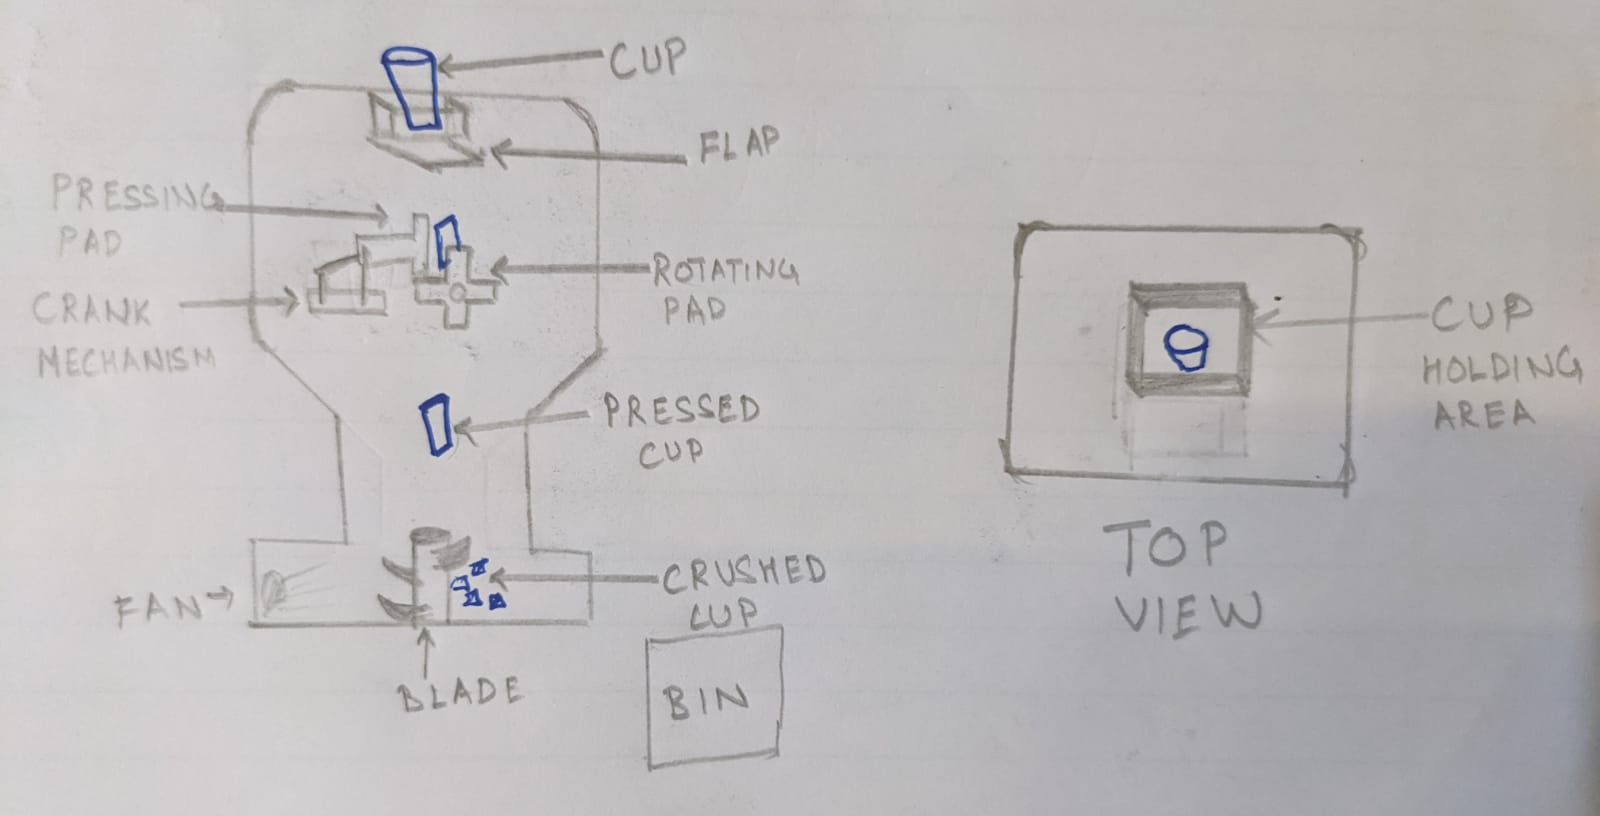 CUP
FLAP
PRESSING
PAD
ROTATING
PAD
CRANK
MECHANISM
PRESSED
CUP
CRUSHED
CUP
FAN
BLADE
BIN
CUP
HOLDING
AREA
TOP
VIEW